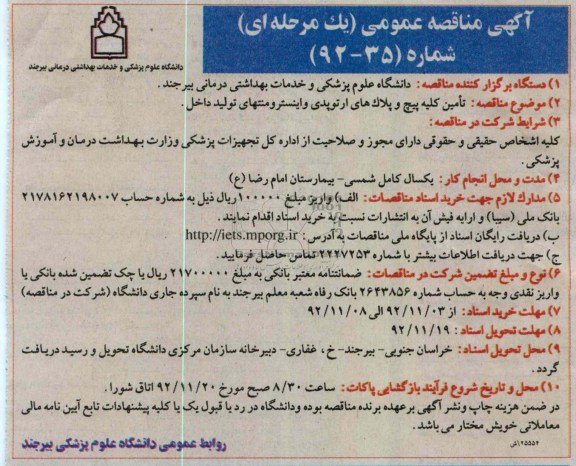 آگهی مناقصه عمومی (یك مرحله ای)
شماره (۳۵-۹۲)
دانشگاه علوم پزشکی و خدمات بهداشتی درمانی بیرجند
۱) دستگاه برگزار کننده مناقصه: دانشگاه علوم پزشکی و خدمات بهداشتی درمانی بیرجند.
۲) موضوع مناقصه: تأمین کلیه پیچ و پلاك های ارتوپدی واینسترومنتهای تولید داخل.
۳) شرایط شرکت در مناقصه:
کلیه اشخاص حقیقی و حقوقی دارای مجوز و صلاحیت از اداره کل تجهیزات پزشکی وزارت بهداشت درمان و آموزش
پزشکی.
۴) مدت و محل انجام کار: یکسال کامل شمسی- بیمارستان امام رضا (ع)
۵) مدارك لازم جهت خرید اسناد مناقصات: الف) واریز مبلغ ۱۰۰۰۰۰ ریال ذیل به شماره حساب ۲۱۷۸۱۶۲۱۹۸۰۰۷
بانک ملی (سیبا) و ارایه فیش آن به انتشارات نسبت به خرید اسناد اقدام نمایند.
ب) دریافت رایگان اسناد از پایگاه ملی مناقصات به آدرس: http://iets.mporg.ir
ج) جهت دریافت اطلاعات بیشتر با شماره ۲۲۲۷۲۵۳ تماس حاصل فرمایید.
۶) نوع و مبلغ تضمین شرکت در مناقصات: ضمانتنامه معتبر بانکی به مبلغ ۲۱۷۰۰۰۰۰ ریال یا چک تضمین شده بانکی یا
واریز نقدی وجه به حساب شماره ۲۶۴۳۸۵۶ بانک رفاه شعبه معلم بیرجند به نام سپرده جاری دانشگاه (شرکت در مناقصه)
۷) مهلت خرید اسناد: از ۹۲/۱۱/۰۳ الی ۹۲/۱۱/۰۸
۸) مهلت تحویل اسناد: ۹۲/۱۱/۱۹
۹) محل تحویل اسناد: خراسان جنوبی- بیرجند- خ ، غفاری- دبیرخانه سازمان مرکزی دانشگاه تحویل و رسید دریافت
گردد.
۱۰) محل و تاریخ شروع فرآیند بازگشایی پاکات: ساعت ۸/۳۰ صبح مورخ ۹۲/۱۱/۲۰ اتاق شورا.
در ضمن هزینه چاپ ونشر آگهی برعهده برنده مناقصه بوده ودانشگاه در رد یا قبول یک یا کلیه پیشنهادات تابع آیین نامه مالی
معاملاتی خویش مختار می باشد.
روابط عمومی دانشگاه علوم پزشکی بیرجند